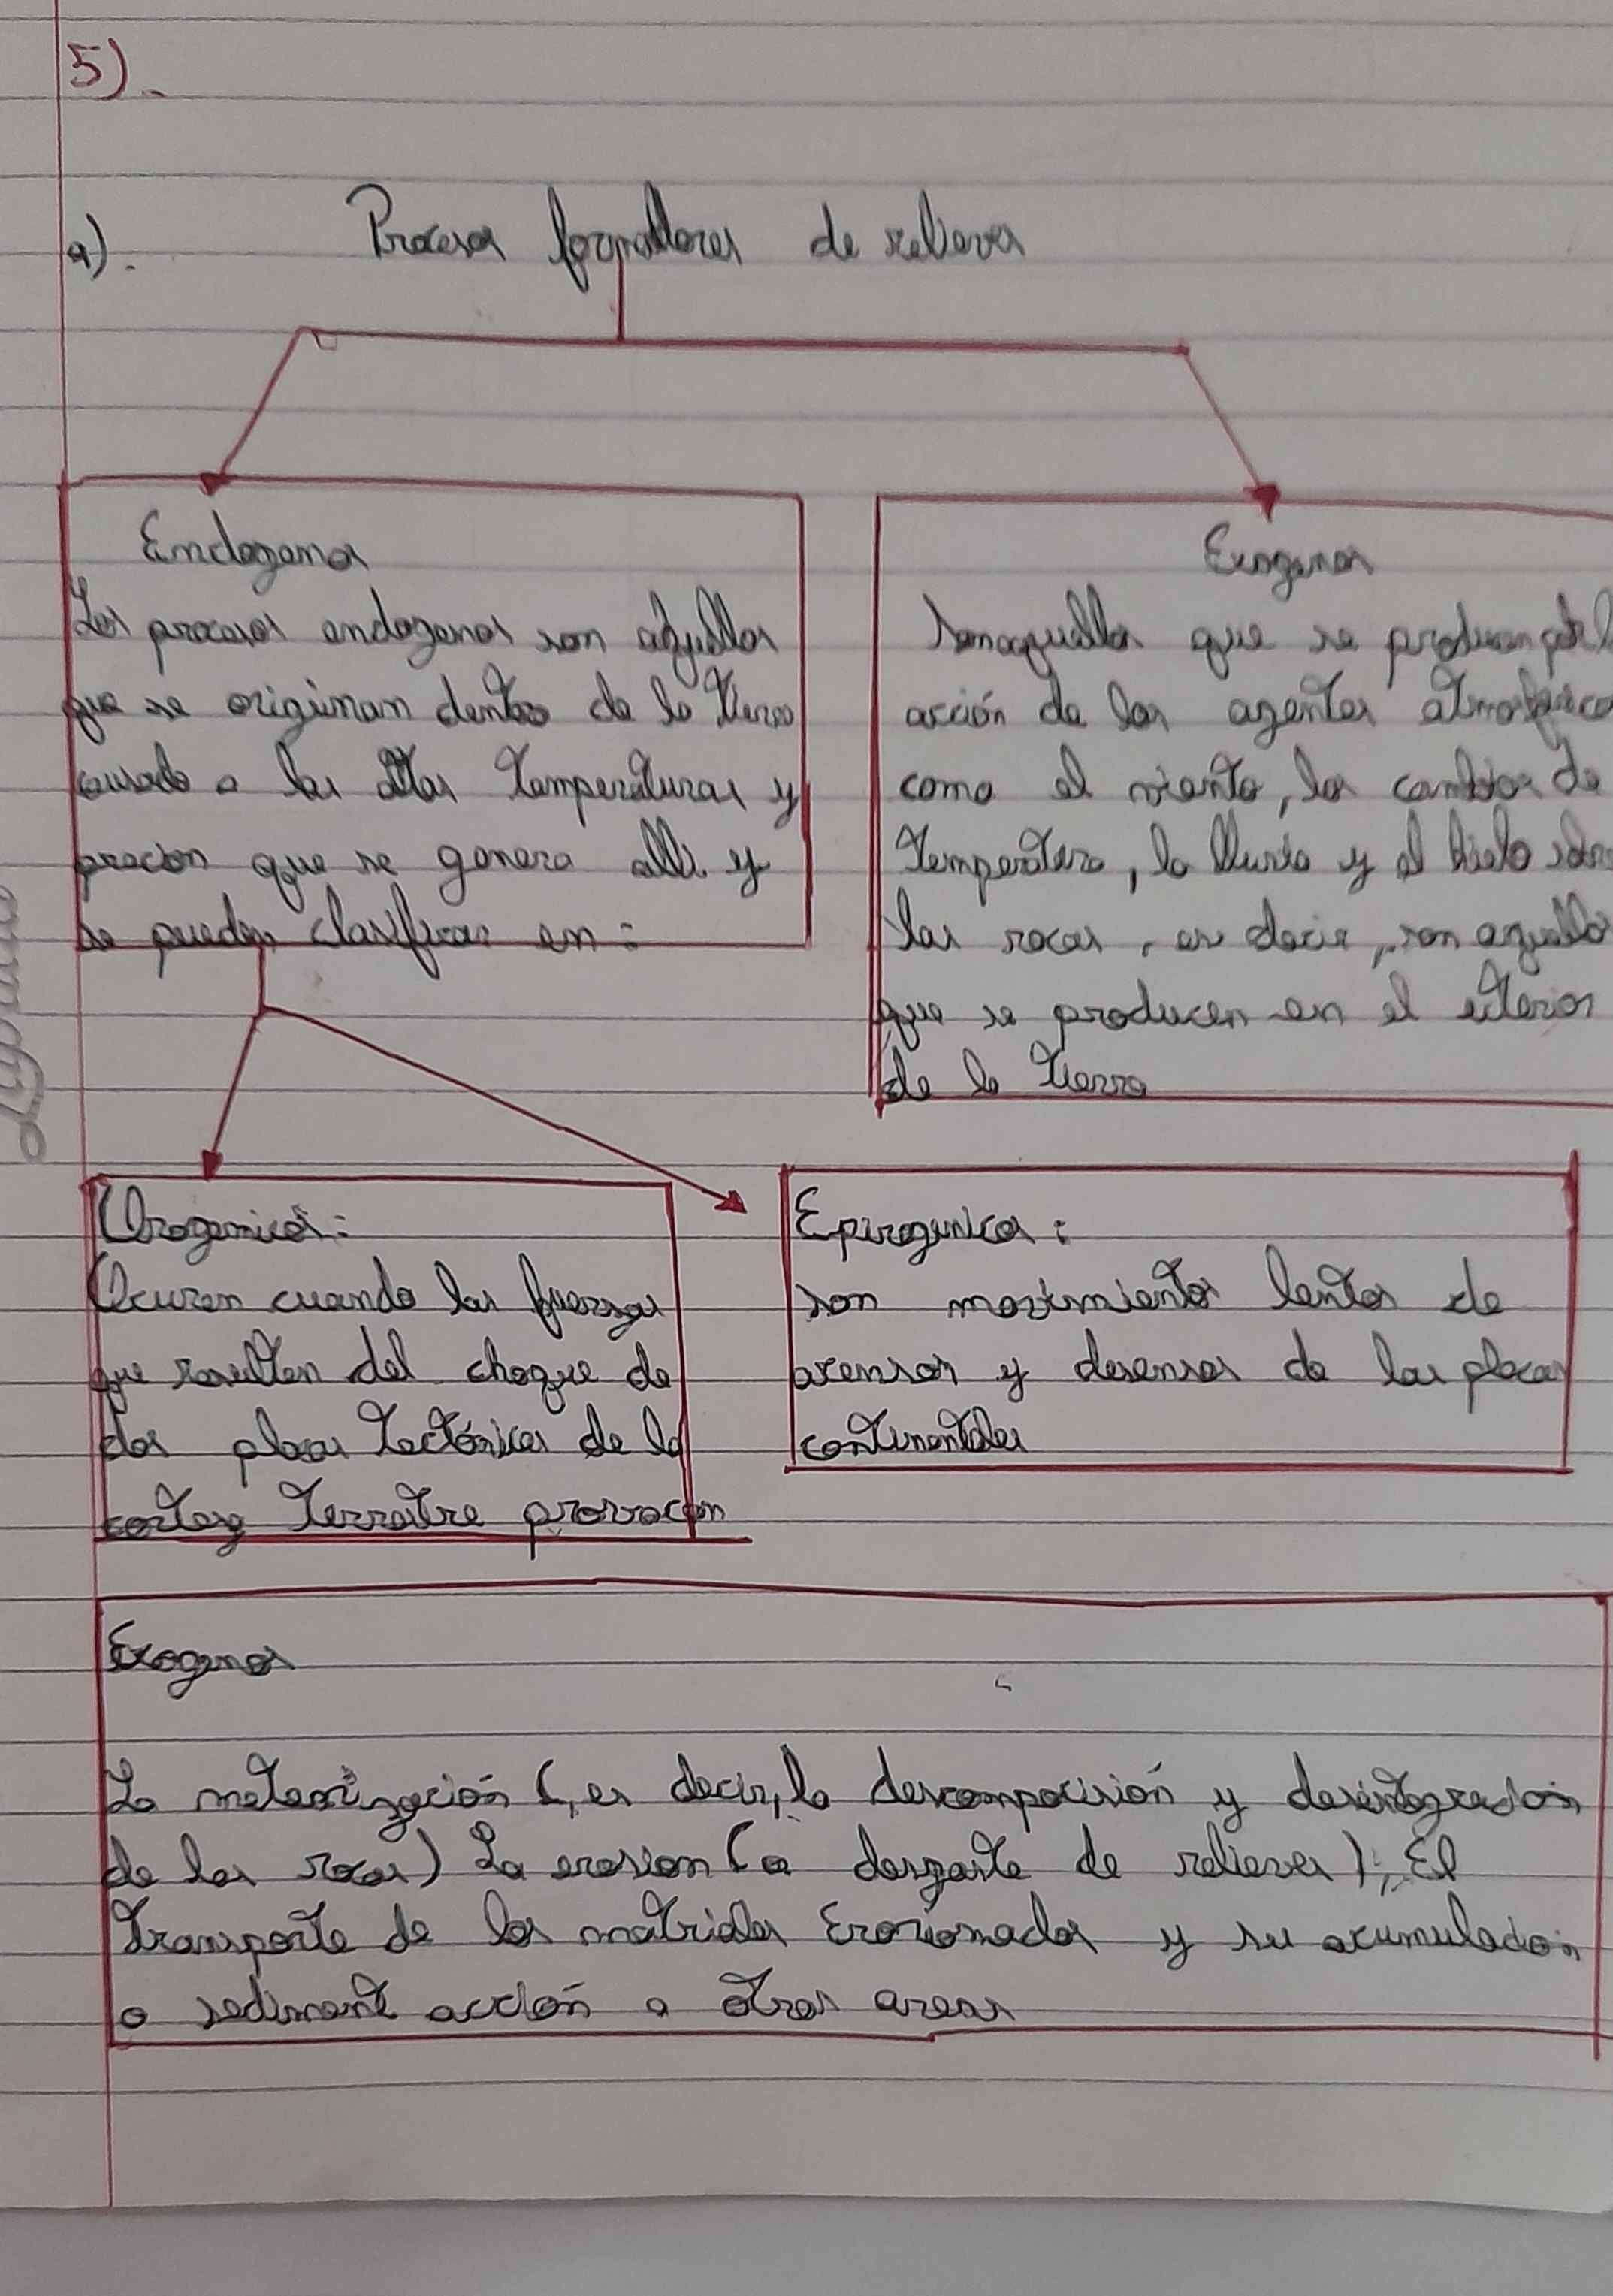 5).
a). Procesos formadores de relieves
Endogenos
Los procesos endogenos son aquellos
que se originan dentro de la tierra
causado a las altas temperaturas y
precion que se genera alli y
se pueden clasificar en:
Exogenos
Son aquellos que se producen por l
acción de los agentes atmosferico
como el viento, los cambios de
temperatura, la lluvia y el hielo sobre
las rocas, es decir, son aquellos
que se producen en el exterior
de la tierra
Orogenicos:
Ocuren cuando las fuerzas
que resulten del choque de
dos placas tectónicas de la
corteza terrestre provocan
Epirogenicos:
son movimientos lentos de
asensos y desensos de las placas
continentales
Exogenos
La meteorización (, es decir, la descompocisión y desintegración
de las rocas) La erosion (o desgaste de relieves); El
transporte de los matriales Erosionados y su acumulación
o sediment acción a otras areas